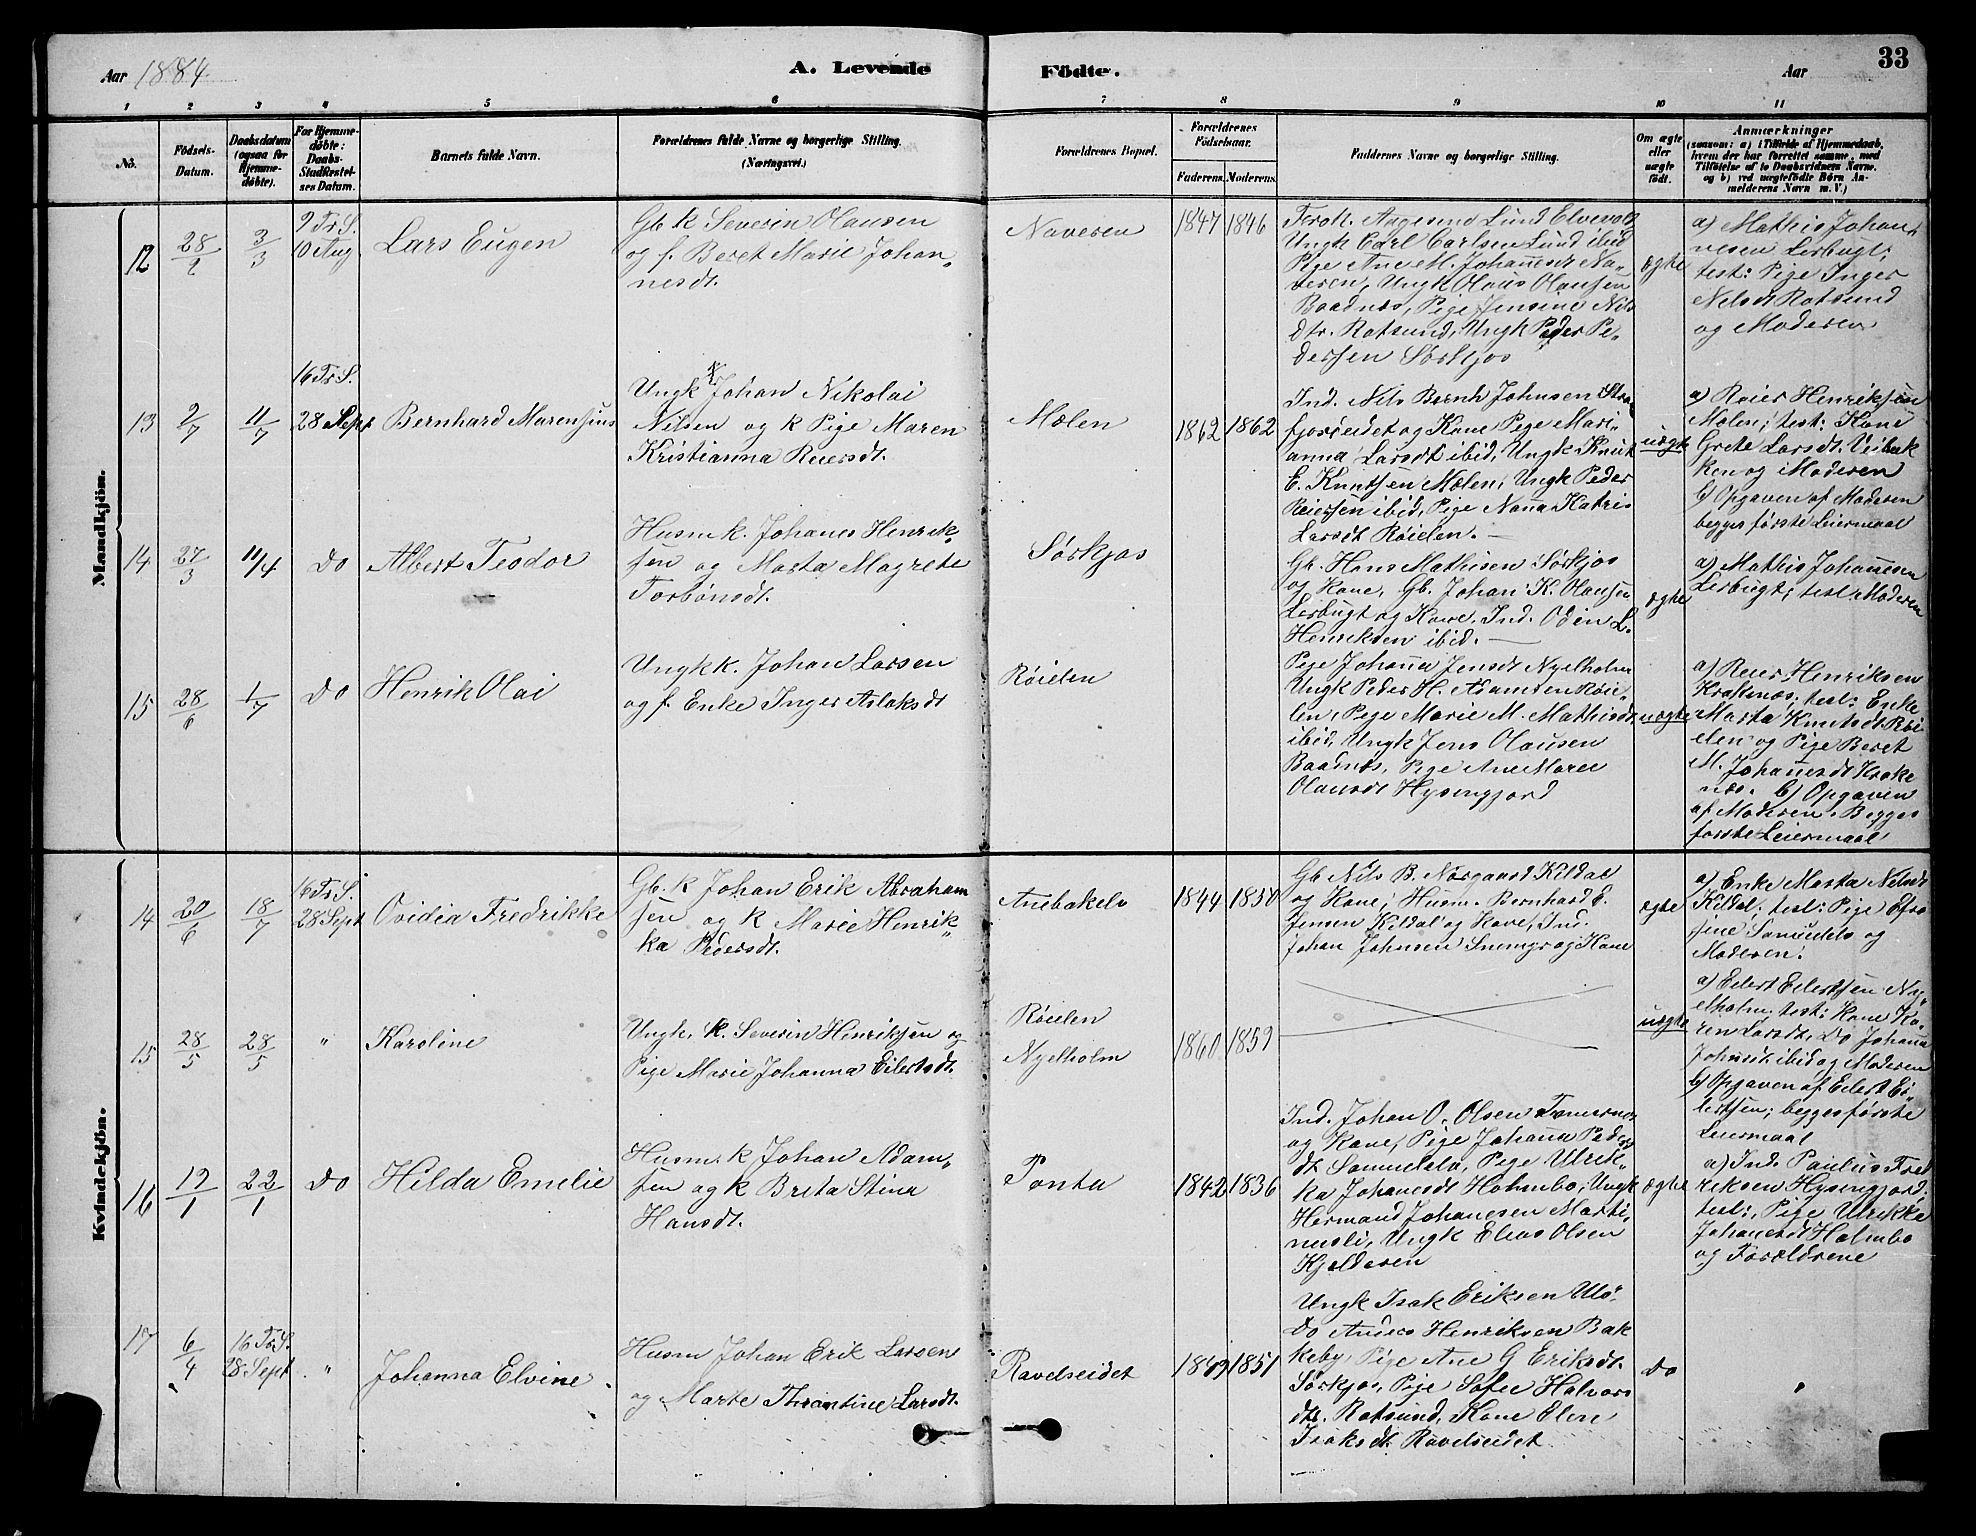 33
Aar 1884 A. Levende Födte. Aar
1 2 3 4 5 6 7 8 9 10 11
No.
Födsels-
Datum.
Daabsdatum
(ogsaa for
Hjemme-
döbte).
For Hjemme-
döbte:
Daabs-
Stadfæstel-
ses Datum.
Barnets fulde Navn.
Forældrenes fulde Navne og borgerlige Stilling.
(Næringsvei.)
Forældrenes Bopæl.
Forældrenes
Födselsaar.
Faderens. Moderens.
Faddernes Navne og borgerlige Stilling.
Om ægte
eller
uægte
födt.
Anmærkninger
(saasom: a) i Tilfælde af Hjemmedaab,
hvem der har forrettet samme, med
Tilföielse af to Daabsvidners Navne,
og b) ved uægtefödte Börn An-
melderens Navn m. V.)
Mandkjön.
12
28/2
3/3
9 Tr S.
10 Aug.
Lars Eugen
Gb k Severin Olausen
og f. Beret Marie Johan-
nesdt.
Naveren
1847 1846
Lund Elvevold
Ungk Carl Carlsen Lund ibid
Pige Ane M. Johannesdt Na-
veren, Ungk Olaus Olausen
Baadnes, Pige Jensine Nils
dtr. Rotsund, Ungk Peder Pe-
dersen Sørkjos
ægte
a) Mathis Johan-
nesen Lerbugt;
test: Pige Inger
Nelsdt Rotsund
og Moderen
13
2/7
11/7
16 Tr S.
28 Sept
Bernhard Marensius
Ungk Johan Nikolai
Nilsen og k Pige Maren
Kristianna Reiersdt.
Molen
1862 1862
Ind. Nils Bernh Johnsen Stra
fjoreidet og Kone, Pige Mari-
anna Larsdt ibid, Ungk Knut
E. Knutsen Molen, Ungk Peder
Reiersen ibid, Pige Nanna Katris
Larsdt Røielen.
uægte
a) Reier Henriksen
Molen; test: Kone
Grete Larsdt. Veibak
ken og Moderen
b) Opgaven af Moderen
begges første Leiermaal
14
27/3
11/4
do
Albert Teodor
Husm k. Johanes Henrik-
sen og Marta Magrete
Torbønsdt.
Sørkjos
Gb. Hans Mathisen Sørkjos
og Kone, Gb. Johan K. Olausen
Lerbugt og Kone, Ind. Odin L.
Henriksen ibid.
ægte
a) Mathis Johannesen
Lerbugt; test: Moderen
15
28/6
1/7
do
Henrik Olai
Ungk k. Johan Larsen
og f. Enke Inger Aslaksdt
Røielen
Pige Johanna Jensdt Nyelholm
Ungk Peder H. Adamsen Røie-
len, Pige Marie M. Mathisdt
ibid, Ungk Jens Olausen
Baadnes, Pige Ane Maree
Olausdt Hysingjord
uægte
a) Reier Henriksen
Kraknæs; test: Enke
Marta Knutsdt Røi
elen og Pige Beret
M. Johannesdt Krake
næs. b) Opgaven
af Moderen. Begges
første Leiermaal
Kvindekjön.
14
20/6
18/7
16 Tr S.
28 Sept
Ovidia Fredrikke
Gb. k Johan Erik Abraham
sen og k Marie Henrik-
ka Pedersdt.
Anebakelv
1844 1850
Gb Nils B. Norgaard Kildal
og Kone; Husm. Bernhard E.
Jensen Kildal og Kone, Ind.
Johan Johnsen og Kone
ægte
a) Enke Marta Nilsdt
Kildal; test: Pige Efro
sine Samuels og
Moderen.
15
28/5
28/5
"
Karoline
Ungk. k. Severin Henriksen og
Pige Marie Johanna Eilertsdt.
Røielen
Nyelholm
1860 1859
uægte
a) Eilert Eilertsen Ny-
elholm, test: Kone Ka-
ren Larsdt, do Johana
Johnsdt ibid og Moderen
b) Opgaven af Eilert Ei-
lertsen; begges første
Leiermaal
16
19/1
22/1
do
Hilda Emelie
Husm. k Johan Adam-
sen og k Brita Stina
Hansdt.
Ponta
1842 1836
Ind. Johan O. Olsen
og Kone, Pige Johanna Peders
dt. Samuelslv, Pige Ulrik-
ka Johanesdt Holmbo, Ungk
Hermand Johanesen Marti-
nusli, Ungk Elias Olsen
Kjelderen
ægte
a) Ind. Paulus Fred
riksen Hysingjord
test:, Pige Ulrikke
Johanesdt Holmbo
og Forældrene
17
6/4
16 Tr S.
28 Sept
"
Johanna Elvine
Husm Johan Erik Larsen
og Marte Thrantine Larsdt.
Ravelseidet
1849 1851
Ungk Isak Eriksen Ulø
do Anders Henriksen Bak
keby, Pige Ane G Eriksdt.
Sørkjos, Pige Sofie Halvors
dt. Rotsund, Kone Elen
Isaksdt Ravelseidet
do